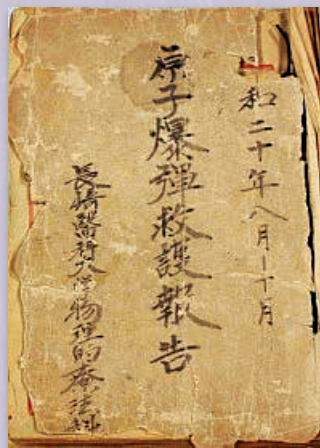 昭和二十年八月–十月
原子爆弾救護報告
長崎醫科大学物理的療法科